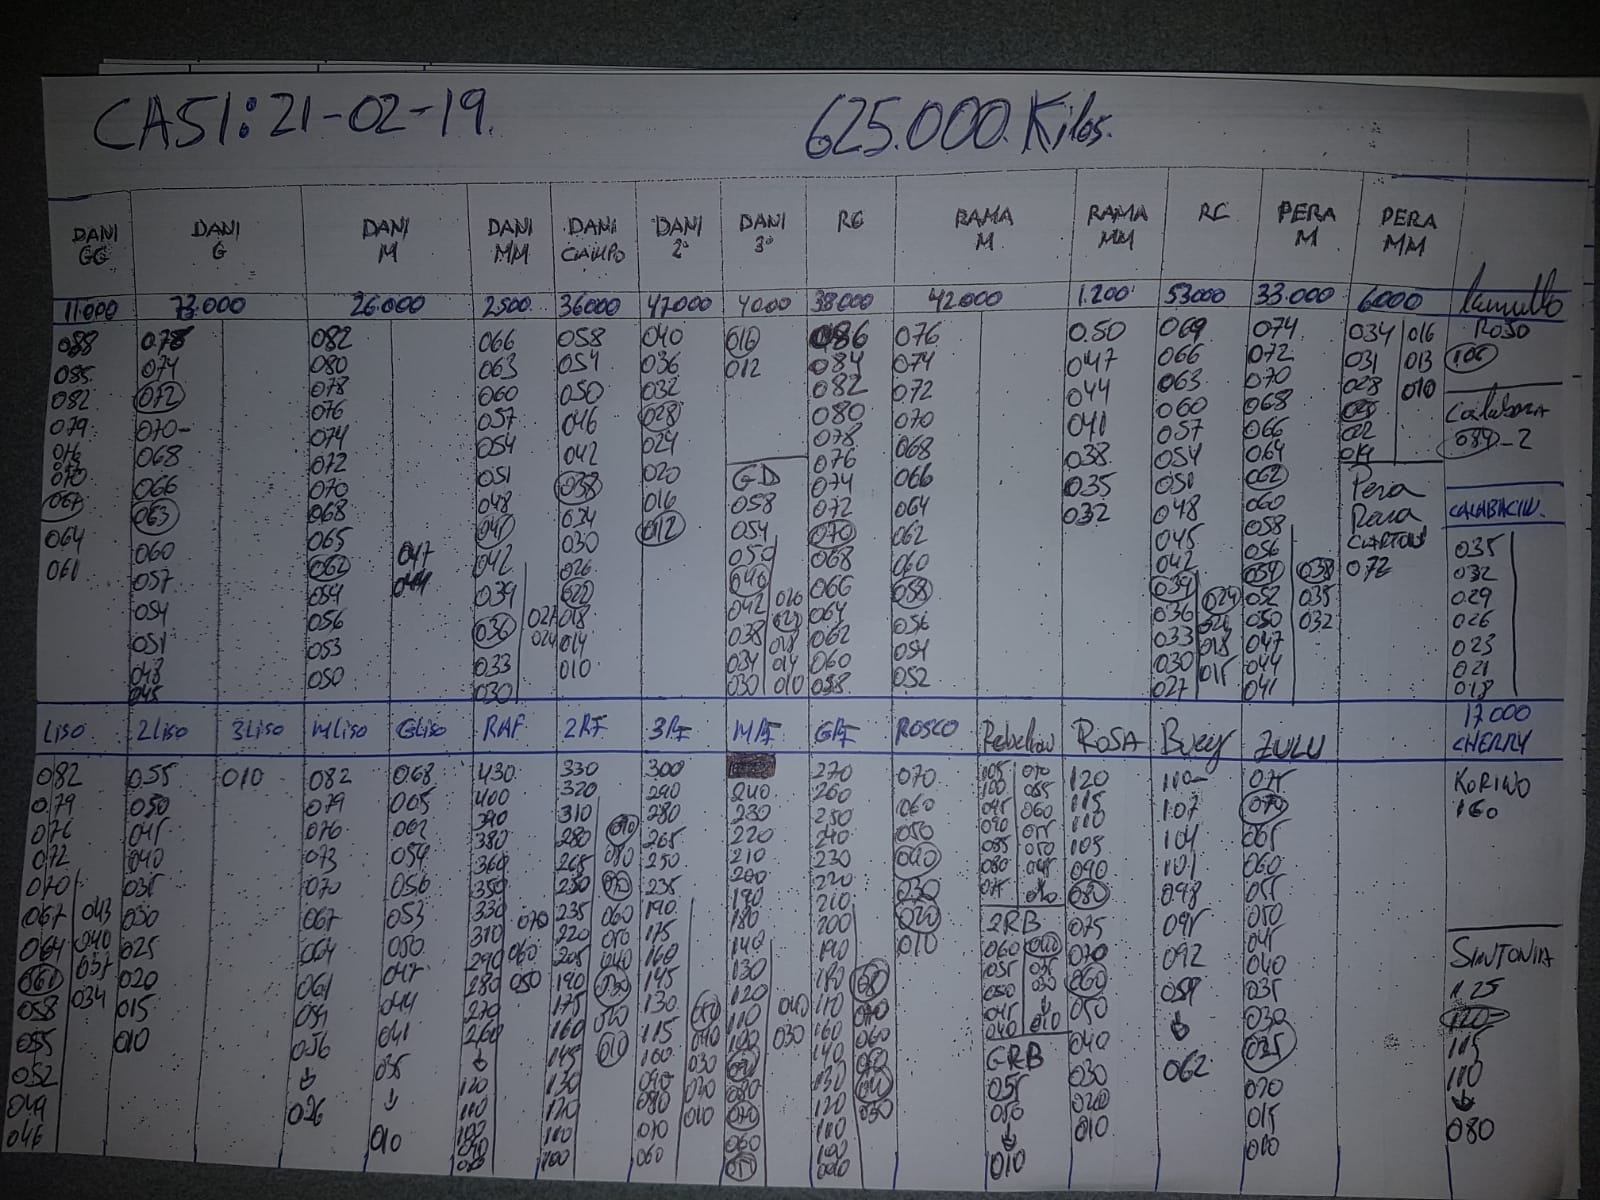 CASI: 21-02-19. 625.000 Kilos.
DANI GG DANI G DANI M DANI MM DANI CAMPO DANI 2ª DANI 3ª RG RAMA M RAMA MM RC PERA M PERA MM
11.000 73.000 26.000 2500 36000 47000 4000 38000 42000 1.200 53000 33.000 6000
088 078 082 066 058 040 016 086 076 0.50 069 074 034 016 ROJO
085 074 080 063 054 036 012 084 074 047 066 072 031 013 100
082 072 078 060 050 032 082 072 044 063 070 028 010
079 070- 076 057 046 028 080 070 041 060 068 Calabaza
076 068 074 054 042 024 078 068 038 057 066 084-2
070 066 072 051 038 020 GD 076 066 035 054 064 019
067 063 070 048 034 016 058 074 064 032 051 062 Pera
064 060 068 042 030 012 054 072 062 048 060 Rara CALABACIN.
061 057 065 039 026 050 070 060 045 058 CARTON 035
054 062 047 036 027 022 068 058 042 056 072 032
051 059 044 033 024 018 042 026 066 056 039 024 054 038 029
048 056 030 014 038 064 054 036 052 035 026
045 053 010 034 018 062 052 033 018 050 032 023
050 030 014 060 030 015 047 021
010 058 027 044 018
041
LISO 2Liso 3Liso MLiso GLiso RAF 2RF 3RF MRF GRF ROSCO Rebelion ROSA Buey ZULU 17.000 CHERRY
082 055 010 082 068 430 330 300 270 070 105 070 120 110 075 KORINO
079 050 079 065 400 320 290 240 260 060 100 055 115 107 070 160
076 045 076 062 390 310 280 230 250 050 095 060 110 104 065
072 040 073 059 380 280 090 265 220 240 040 090 055 105 101 060
070 035 070 056 360 265 080 250 210 230 030 085 050 090 098 055
067 043 030 067 053 350 250 070 235 200 220 020 080 045 080 095 050
064 040 025 064 050 330 070 235 060 190 190 210 010 075 040 075 092 045
061 037 020 061 047 310 060 220 050 175 180 200 2RB 070 059 040 SINTONIA
058 034 015 059 044 290 050 205 040 160 140 190 060 060 062 035 125
055 010 056 041 280 190 030 145 130 180 080 055 035 050 030 120
052 ↓ 035 270 175 020 130 050 120 040 170 070 050 030 040 025 115
049 026 ↓ 260 160 010 115 040 110 030 160 060 045 ↓ 030 020 110
046 010 ↓ 145 100 030 100 140 050 040 010 020 015 ↓
120 130 090 020 090 130 040 GRB 010 010 080
110 120 080 010 080 120 030 055
100 110 070 070 110 050
090 100 060 060 100 ↓
080 050 090 010